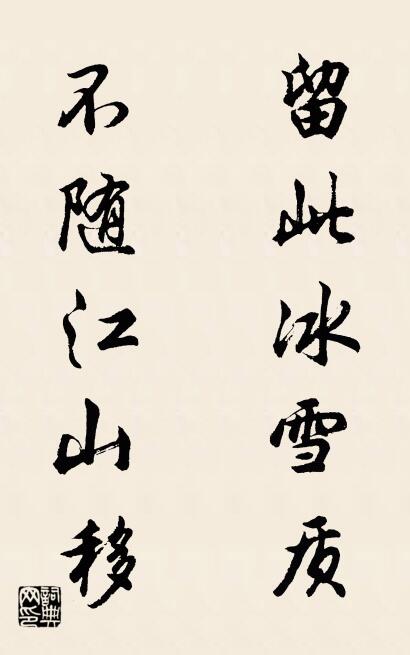 留此冰雪质
不随江山移
詞典网印